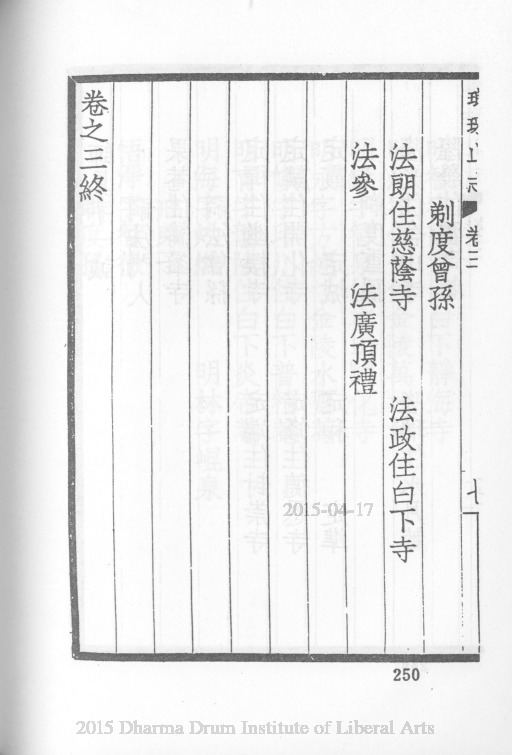 卷三
剃度曾孫
法朗住慈蔭寺 法政住白下寺
法參 法廣頂禮
卷之三終
250
2015-04-17
2015 Dharma Drum Institute of Liberal Arts